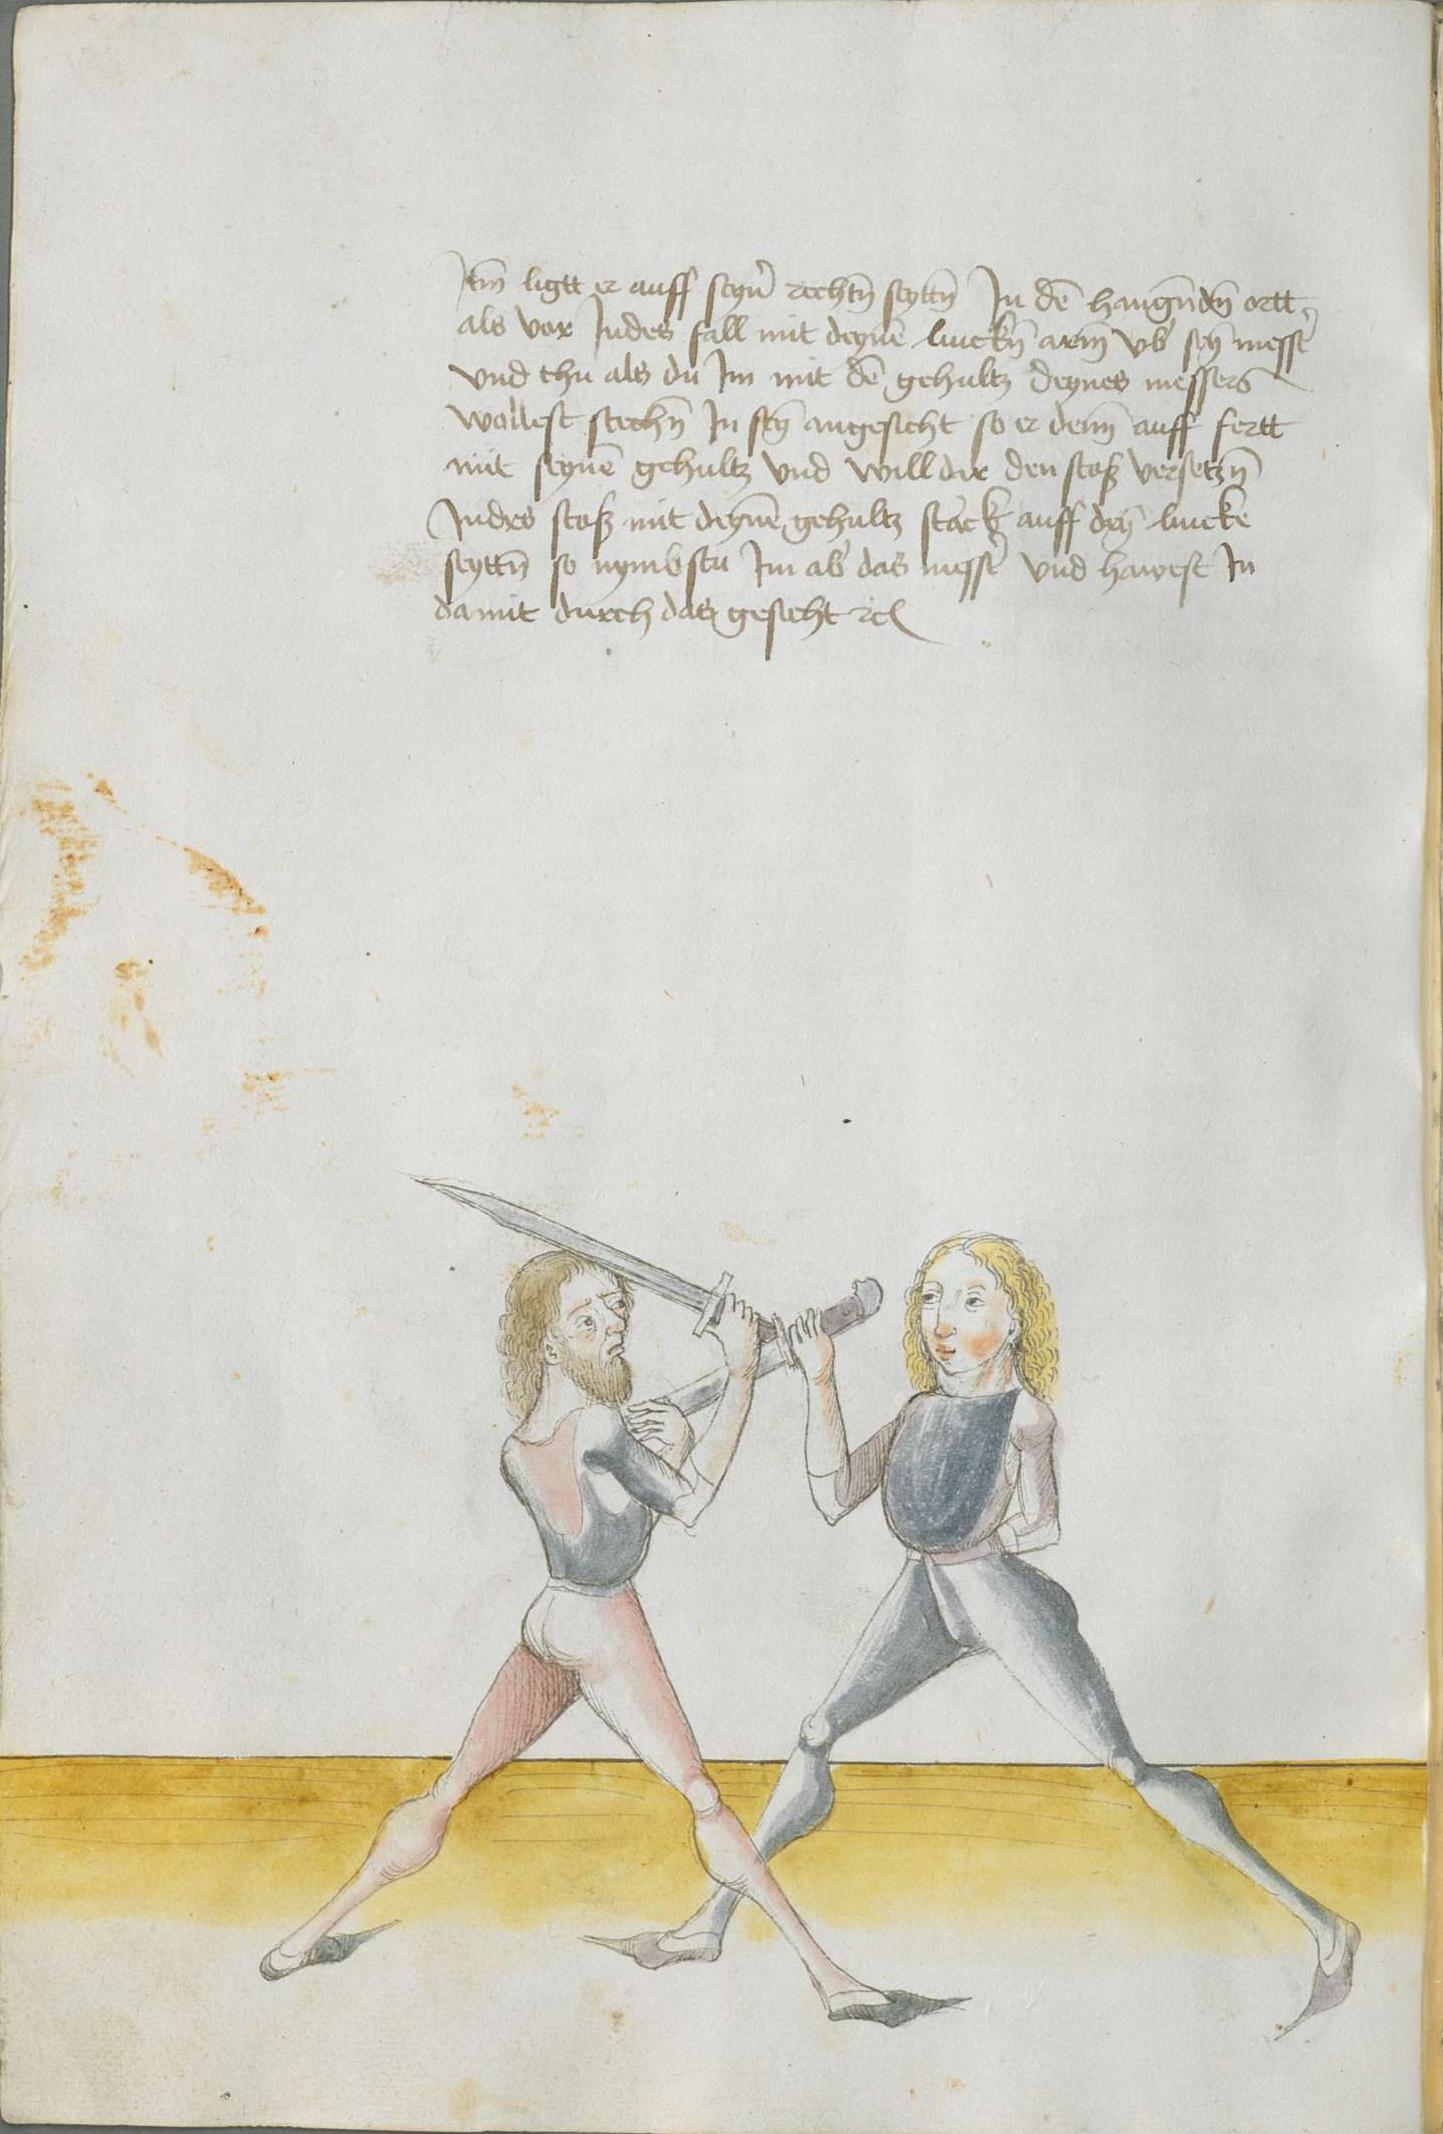 Itm̄ ligtt er auff seyn̄ rechtn̄ seyttn̄ In dē hangn̄dn̄ ortt
als vor Indes fall mit deynē linckn̄ arm̄ vb̄ sey̅ messē
vnd thu als du Im mit dē gehultz deynes messers
wollest stechn̄ In sey̅ angesicht so er denn̄ auff fertt
mit seynē gehultz vnd will dir den stoß versetzn̄
Indes stoß mit deynē gehultz starck auff dey̅ lincke
seyttn̄ so nymbstu Im ab das messē vnd hawest In
damit durch das gesicht rc